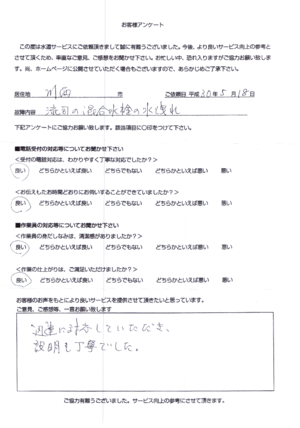 お客様アンケート
この度は水道サービスにご依頼頂きまして誠に有難うございました。今後、より良いサービス向上の参考と
させて頂くため、率直なご意見、ご感想をお聞かせ下さい。お忙しい中、恐れ入りますがご協力お願い致しま
す。尚、ホームページに公開させていただく場合もございますので、あらかじめご了承下さい。
居住地 川西 市 ご依頼日 平成 30年 5月 18日
故障内容 流司の混合水栓の水漏れ
下記アンケートにご協力お願い致します。該当項目に〇印をつけて下さい。
■電話受付の対応等についてお聞かせ下さい
<受付の電話対応は、わかりやすく丁寧は対応でしたか?>
良い どちらかといえば良い どちらでもない どちらかといえば悪い 悪い
<お伝えしたお時間どおりにお伺いすることができていましたか?>
良い どちらかといえば良い どちらでもない どちらかといえば悪い 悪い
■作業員の対応等についてお聞かせ下さい
<作業員の身だしなみは、清潔感がありましたか?>
良い どちらかといえば良い どちらでもない どちらかといえば悪い 悪い
<作業の仕上がりは、ご満足いただけましたか?>
良い どちらかといえば良い どちらでもない どちらかといえば悪い 悪い
お客様のお声をもとにより良いサービスを提供させて頂きたいと思っています。
ご意見、ご感想等、一言お願い致します
迅速に対応していただき、
説明も丁寧でした。
ご協力有難うございました。サービス向上の参考にさせて頂きます。